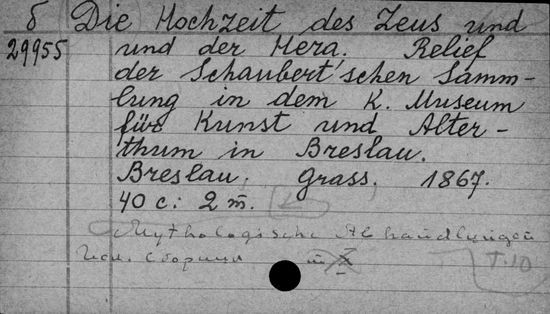 б Die Hochzeit des Zeus und
29955 und der Hera. Relief
der Schaubert'schen Samm-
lung in dem K. Museum
für Kunst und Alter-
thum in Breslau.
Breslau. Grass. 1867.
40 c. 2 m.
Mythologische Abhandlungen
T. 10